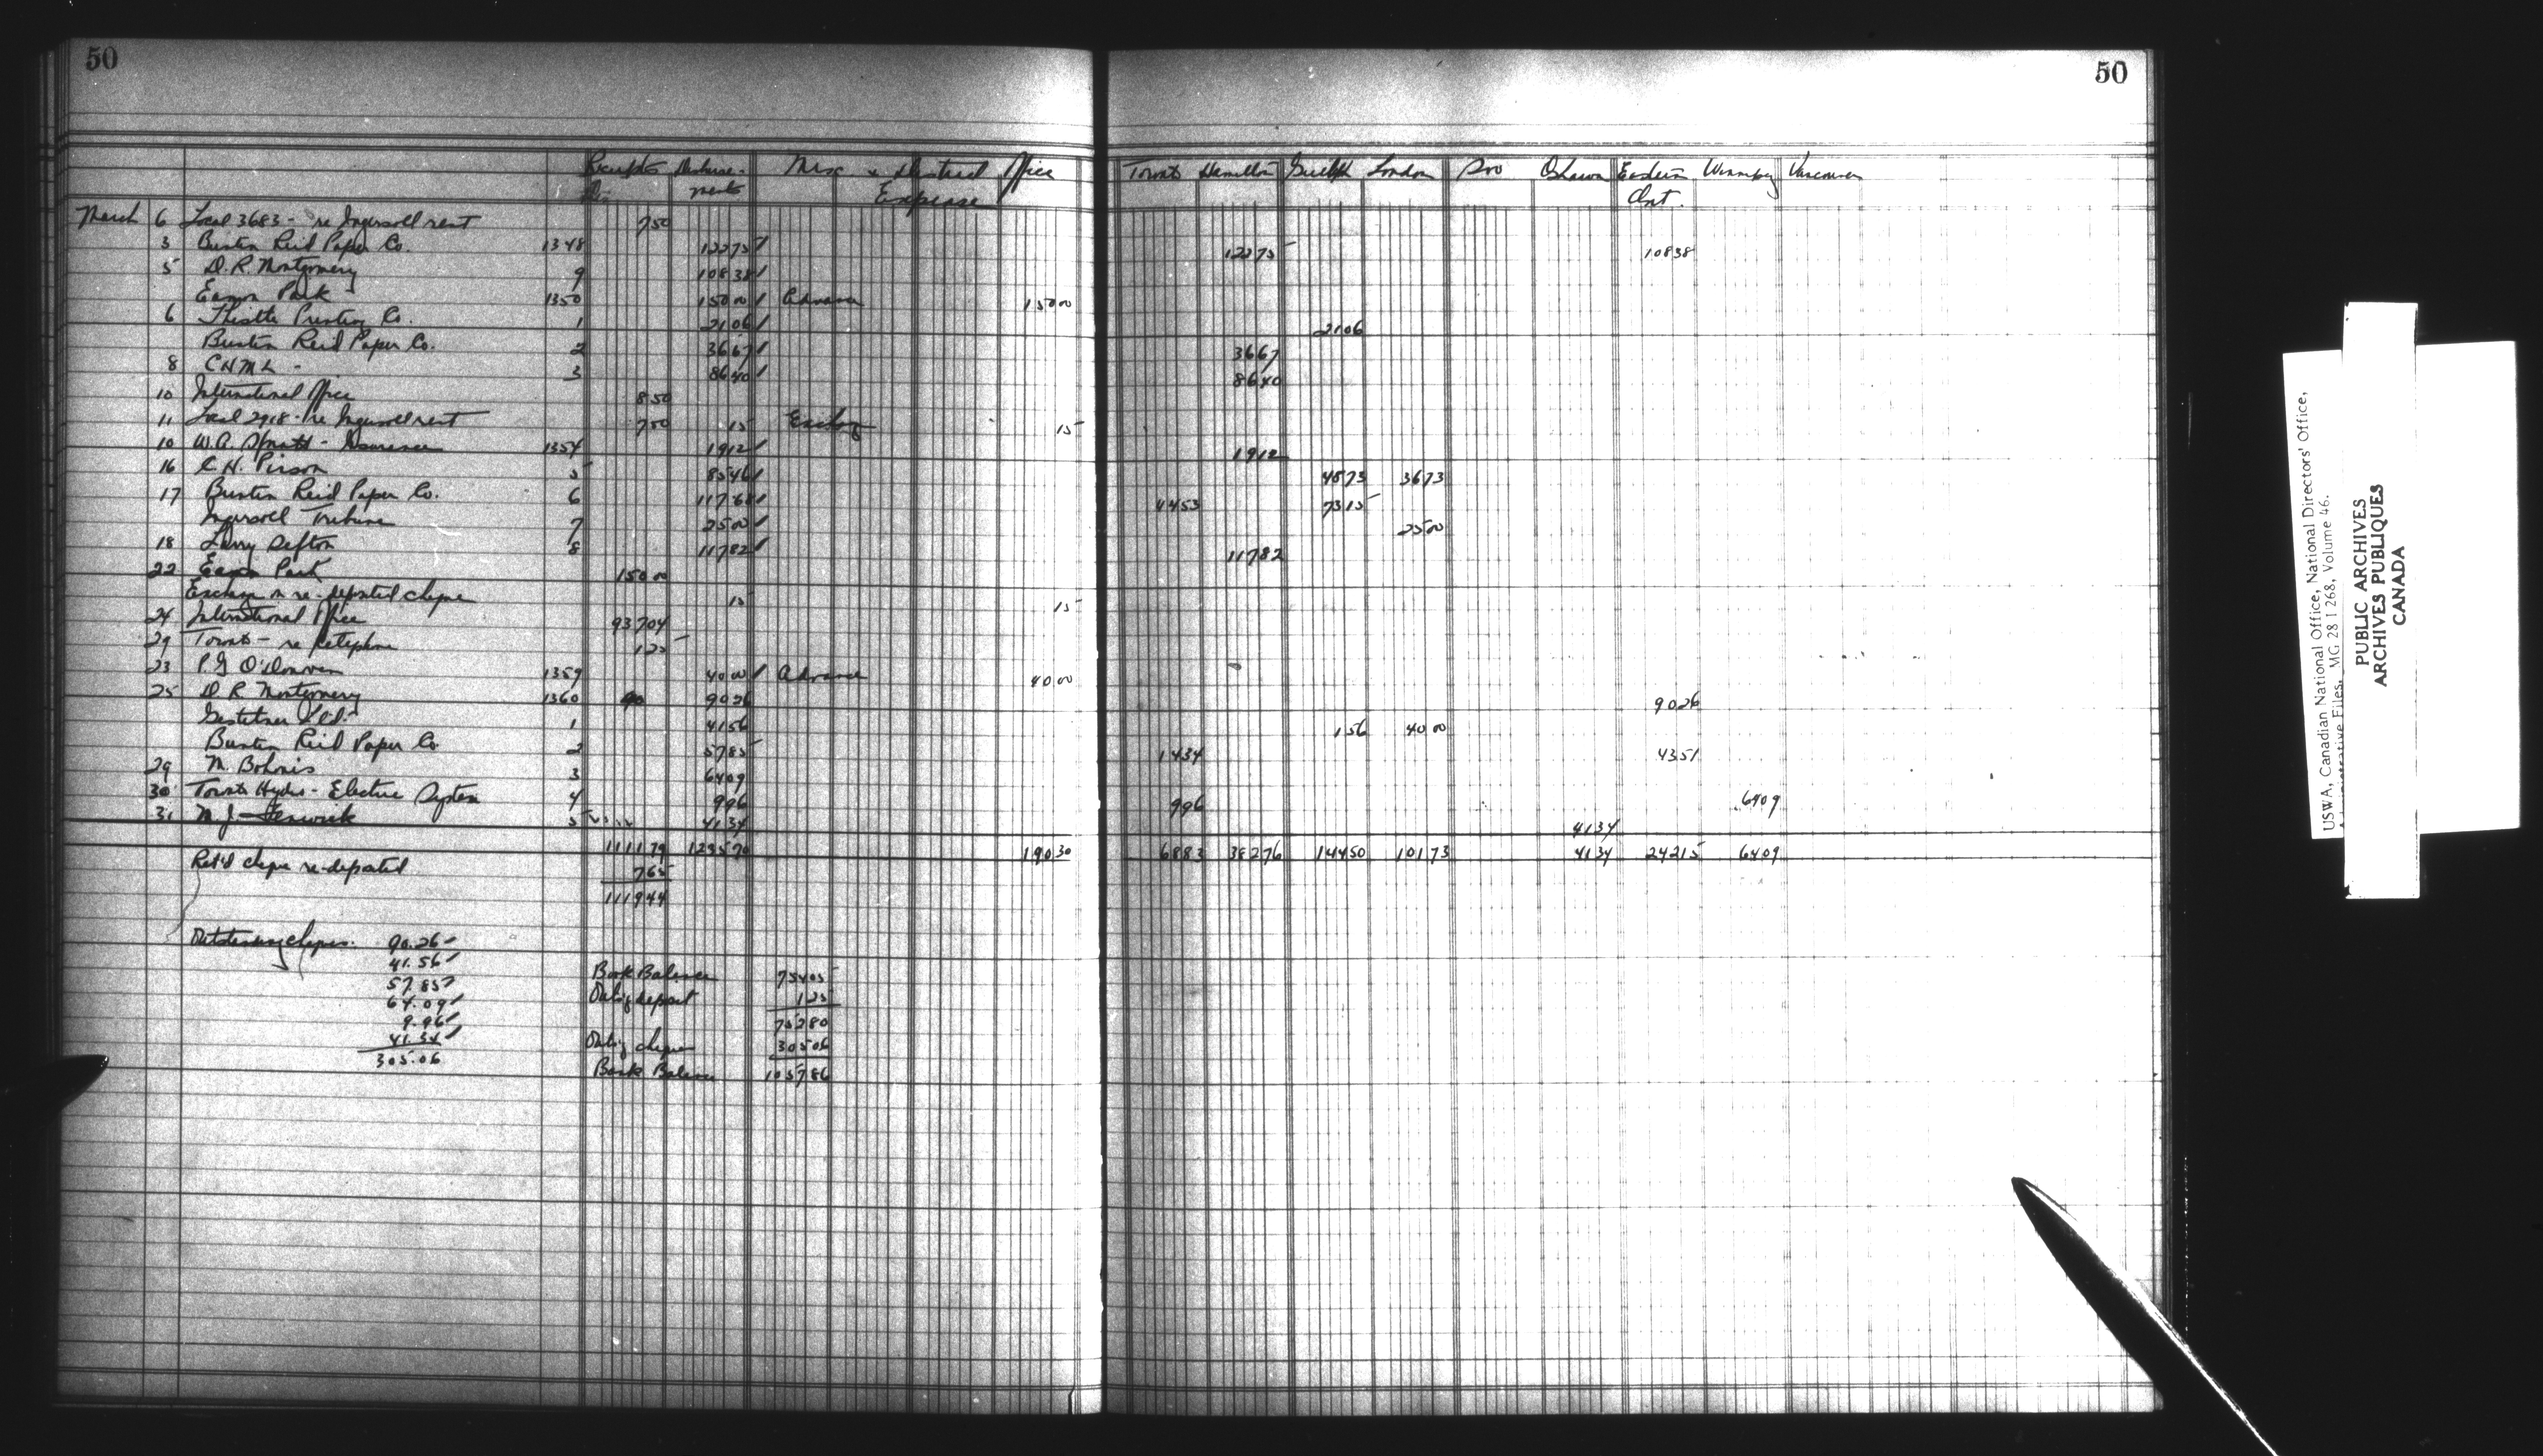 50
50
Receipts Disburse- Misc & District Office Toronto Hamilton Guelph London Soo Oshawa Eastern Winnipeg Vancouver
ments Expense Ont.
March 6 Local 3683 - re Ingersoll rent 750
3 Buntin Reid Paper Co. 1348 12275 12275
5 D.R. Montgomery 9 10838 10838
Eamon Park 1350 15000 Advance 15000
6 Thistle Printing Co. 1 2106 2106
Buntin Reid Paper Co. 2 3667 3667
8 CHML - 3 8640 8640
10 International Office 850
11 Local 2918 - re Ingersoll rent 750 15 Exchg 15
10 W.A. Spratt - Insurance 1354 1912 1912
16 C.H. Pirson 5 8546 4873 3673
17 Buntin Reid Paper Co. 6 11768 4453 7315
Ingersoll Tribune 7 2500 2500
18 Larry Sefton 8 11782 11782
22 Eamon Park 15000
Exchange on re-deposited cheque 15 15
24 International Office 93704
29 Toronto - re telephone 125
23 P.G. O'Donovan 1359 4000 Advance 4000
25 D R Montgomery 1360 9026 9026
Gestetner Ltd. 1 4156 156 4000
Buntin Reid Paper Co 2 5785 1434 4351
29 M. Bohonis 3 6409 6409
30 Toronto Hydro-Electric System 4 996 996
31 M.J. Fenwick 5 4134 4134
111179 123570 19030 6883 38276 14450 10173 4134 24215 6409
Ret'd cheque re-deposited 765
111944
Outstanding cheques. 90.26
41.56
57.85
64.09
9.96
41.34
305.06
Book Balance 75405
Outs'g deposit 125
75280
Outs'g cheques 30506
Bank Balance 105786
USWA, Canadian National Office, National Directors' Office,
Administrative Files. MG 28 I 268, Volume 46.
PUBLIC ARCHIVES
ARCHIVES PUBLIQUES
CANADA